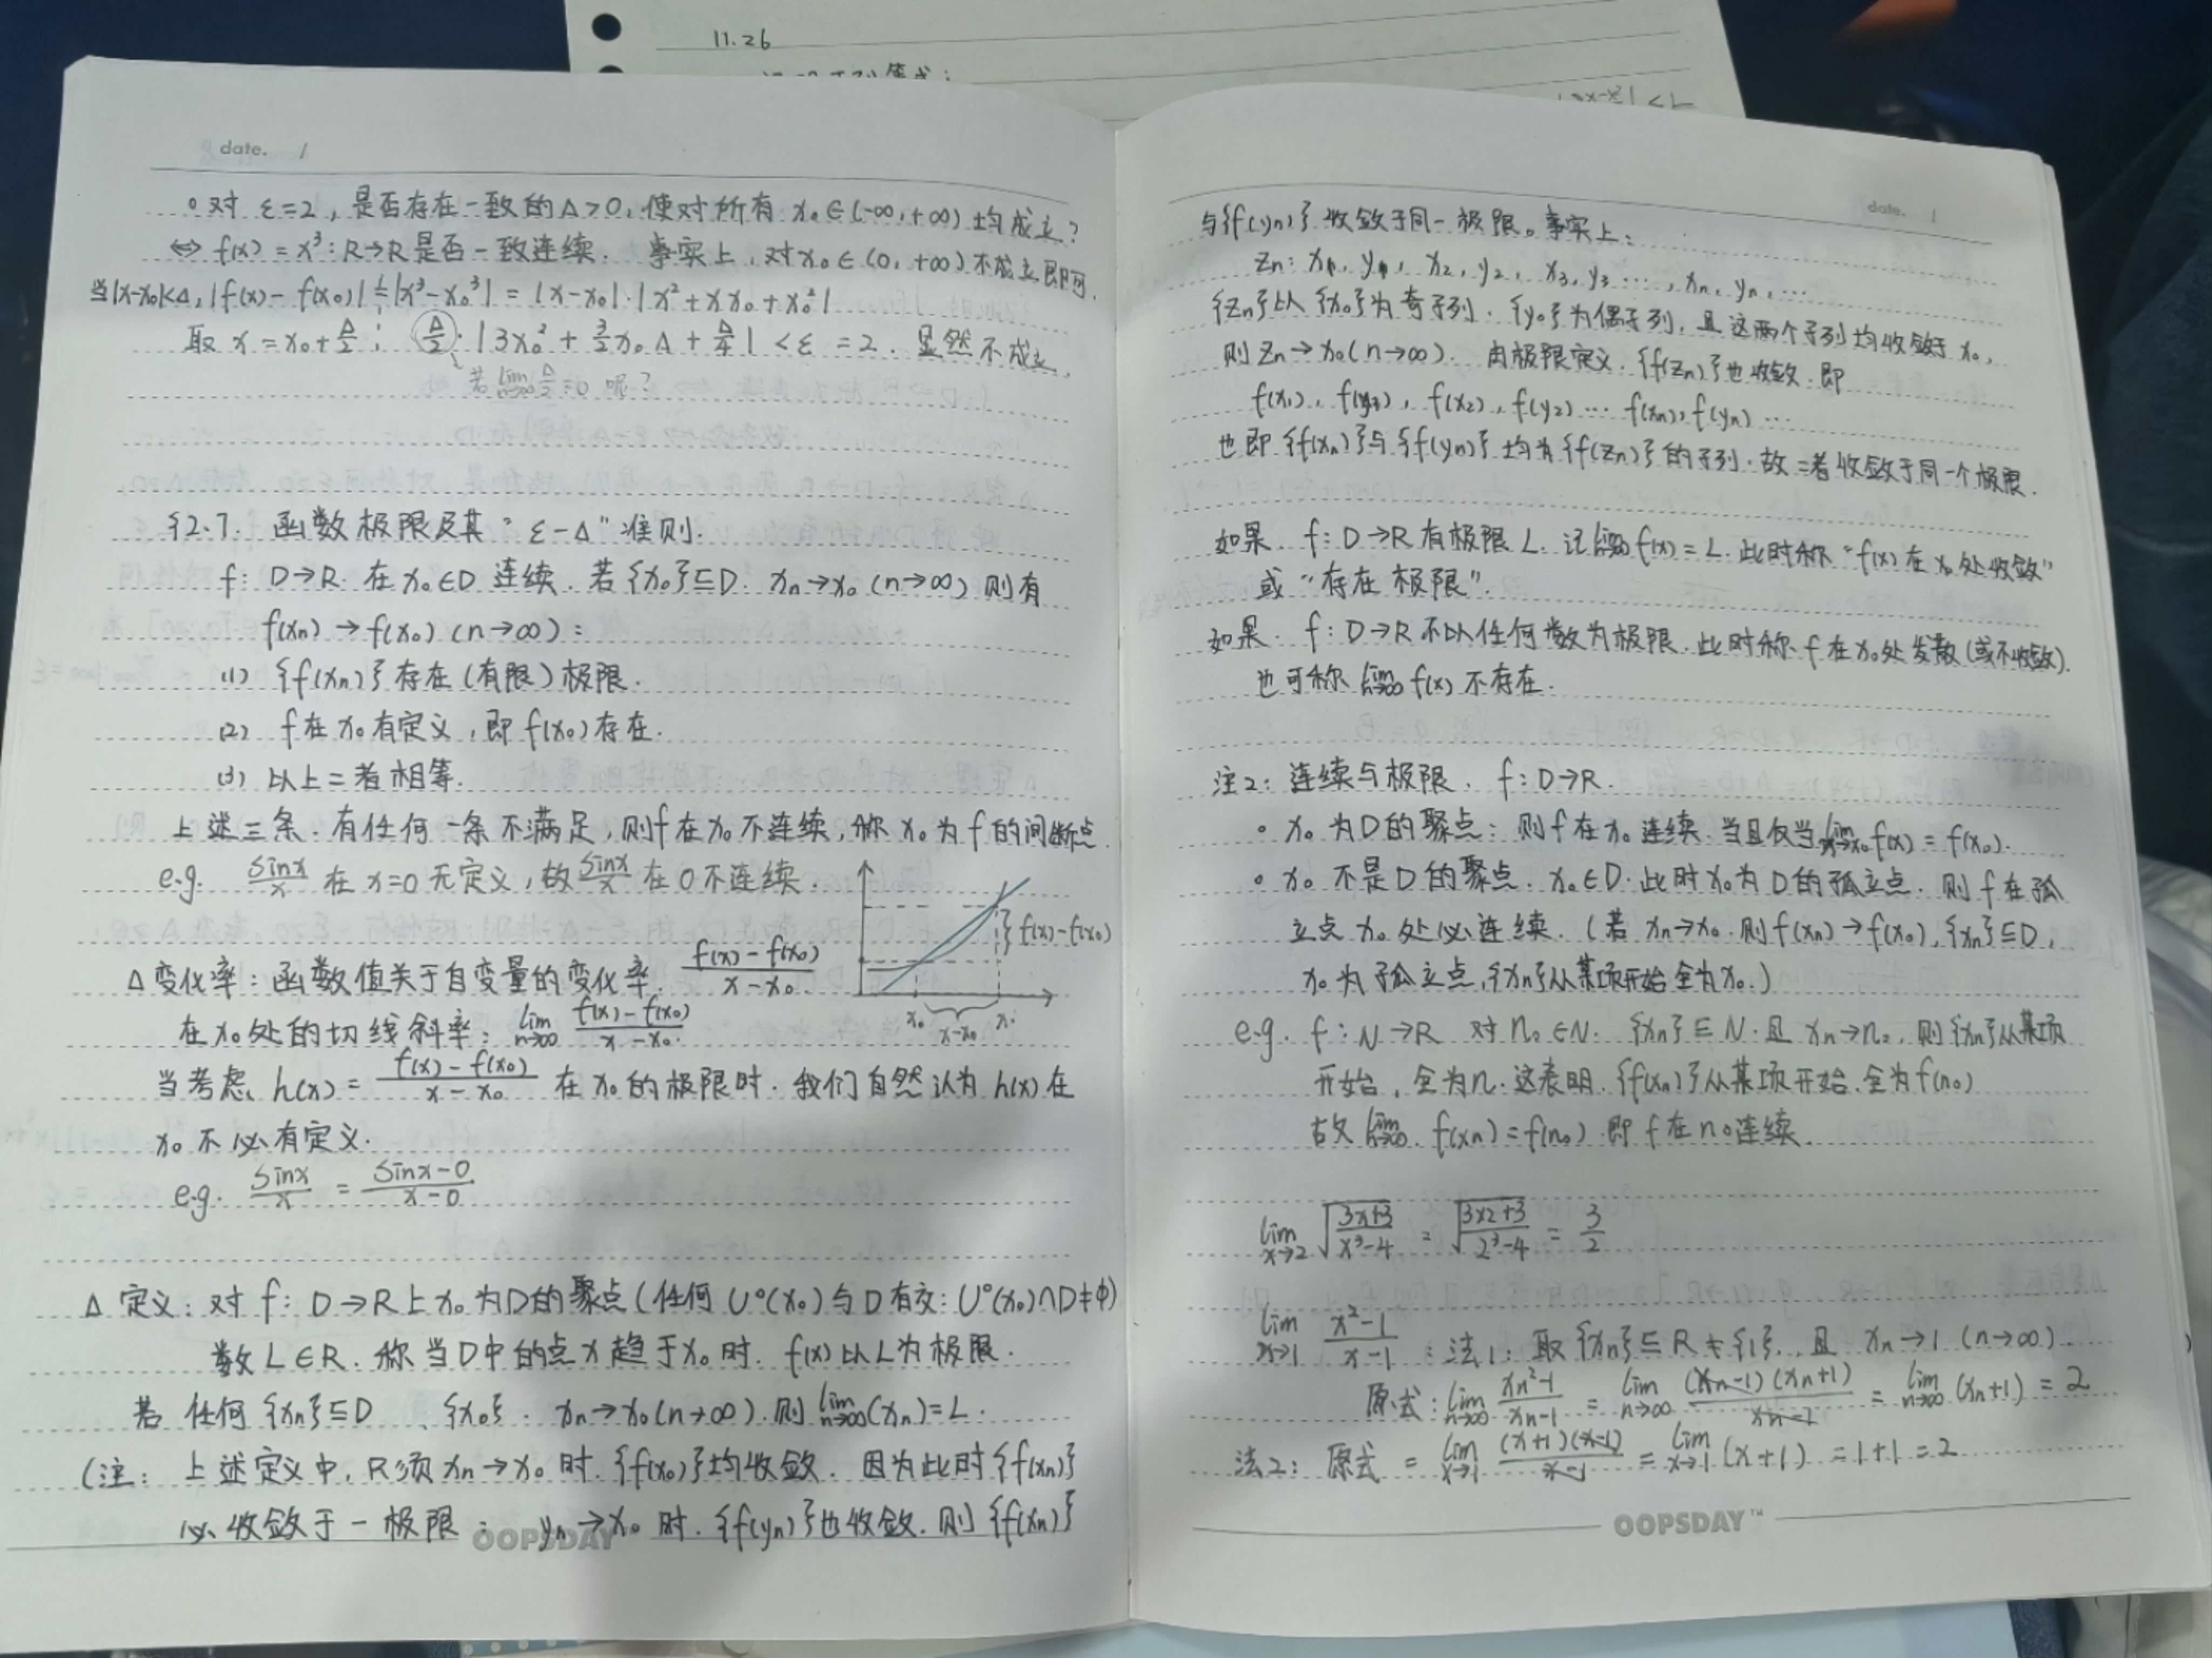 11.26
date. /
。对 ε=2, 是否存在一致的Δ>0, 使对所有 x₀∈(-∞,+∞) 均成立?
⇔ f(x) = x³: R→R 是否一致连续. 事实上, 对x₀∈(0,+∞)不成立即可.
当|x-x₀|<Δ, |f(x)-f(x₀)| = |x³-x₀³| = |x-x₀|·|x²+xx₀+x₀²|
取 x=x₀+Δ/2 ; Δ/2·|3x₀²+3/2x₀Δ+Δ/4| <ε =2. 显然不成立.
若 lim Δ/2=0 呢?
§2.7. 函数极限及其"ε-Δ"准则.
f: D→R. 在 x₀∈D 连续. 若{x₀}⊆D. xₙ→x₀ (n→∞) 则有
f(xₙ)→f(x₀) (n→∞):
(1) {f(xₙ)} 存在(有限)极限.
(2) f在x₀有定义, 即f(x₀)存在.
(3) 以上二者相等.
上述三条. 有任何一条不满足, 则f在x₀不连续, 称x₀为f的间断点.
e.g. sinx/x 在 x=0 无定义, 故 sinx/x 在0不连续.
f(x)-f(x₀)
x₀ x-x₀ x.
Δ变化率: 函数值关于自变量的变化率. (f(x)-f(x₀))/(x-x₀)
在x₀处的切线斜率: lim n→∞ (f(x)-f(x₀))/(x-x₀).
当考虑 h(x)=(f(x)-f(x₀))/(x-x₀) 在x₀的极限时. 我们自然认为h(x)在
x₀不必有定义.
e.g. sinx/x = (sinx-0)/(x-0)
Δ 定义: 对 f: D→R上x₀为D的聚点(任何U°(x₀)与D有交: U°(x₀)∩D≠φ)
数L∈R. 称当D中的点x趋于x₀时. f(x)以L为极限.
若 任何{xₙ}⊆D \ {x₀}. xₙ→x₀(n→∞). 则 lim n→∞ (xₙ)=L.
(注: 上述定义中. R须xₙ→x₀时. {f(x₀)}均收敛. 因为此时{f(xₙ)}
必收敛于一极限: yₙ→x₀时. {f(yₙ)}也收敛. 则{f(xₙ)}
OOPSDAY
date. /
与{f(yₙ)} 收敛于同一极限。事实上:
zₙ: x₁, y₁, x₂, y₂, x₃, y₃ ⋯, xₙ, yₙ, ⋯
{zₙ}以{x₀}为奇子列. {y₀}为偶子列, 且这两个子列均收敛于x₀,
则 zₙ→x₀(n→∞). 由极限定义. {f(zₙ)}也收敛. 即
f(x₁), f(y₁), f(x₂), f(y₂) ⋯ f(xₙ), f(yₙ) ⋯
也即{f(xₙ)}与{f(yₙ)}均为{f(zₙ)}的子列. 故二者收敛于同一个极限.
如果. f: D→R有极限L. 记 lim f(x)=L. 此时称"f(x)在x₀处收敛"
或"存在极限".
如果. f: D→R不以任何数为极限. 此时称f在x₀处发散(或不收敛).
也可称 lim f(x)不存在.
注2: 连续与极限. f: D→R.
。x₀为D的聚点: 则f在x₀连续. 当且仅当 lim x→x₀ f(x)=f(x₀).
。x₀不是D的聚点. x₀∈D. 此时x₀为D的孤立点. 则f在孤
立点x₀处必连续. (若xₙ→x₀. 则f(xₙ)→f(x₀), {xₙ}⊆D,
x₀为孤立点, {xₙ}从某项开始全为x₀.)
e.g. f: N→R 对n₀∈N. {xₙ}⊆N. 且 xₙ→n₀, 则{xₙ}从某项
开始, 全为n. 这表明. {f(xₙ)}从某项开始. 全为f(n₀)
故 lim n→∞. f(xₙ)=f(n₀) 即f在n₀连续.
lim x→2 √((3x+3)/(x³-4)) = √((3×2+3)/(2³-4)) = 3/2
lim x→1 (x²-1)/(x-1) : 法1: 取{xₙ}⊆R≠{1}. 且 xₙ→1 (n→∞).
原式: lim n→∞ (xₙ²-1)/(xₙ-1) = lim n→∞ (xₙ-1)(xₙ+1)/(xₙ-1) = lim n→∞ (xₙ+1) = 2
法2: 原式 = lim x→1 (x+1)(x-1)/(x-1) = lim x→1 (x+1) =1+1=2
OOPSDAY™